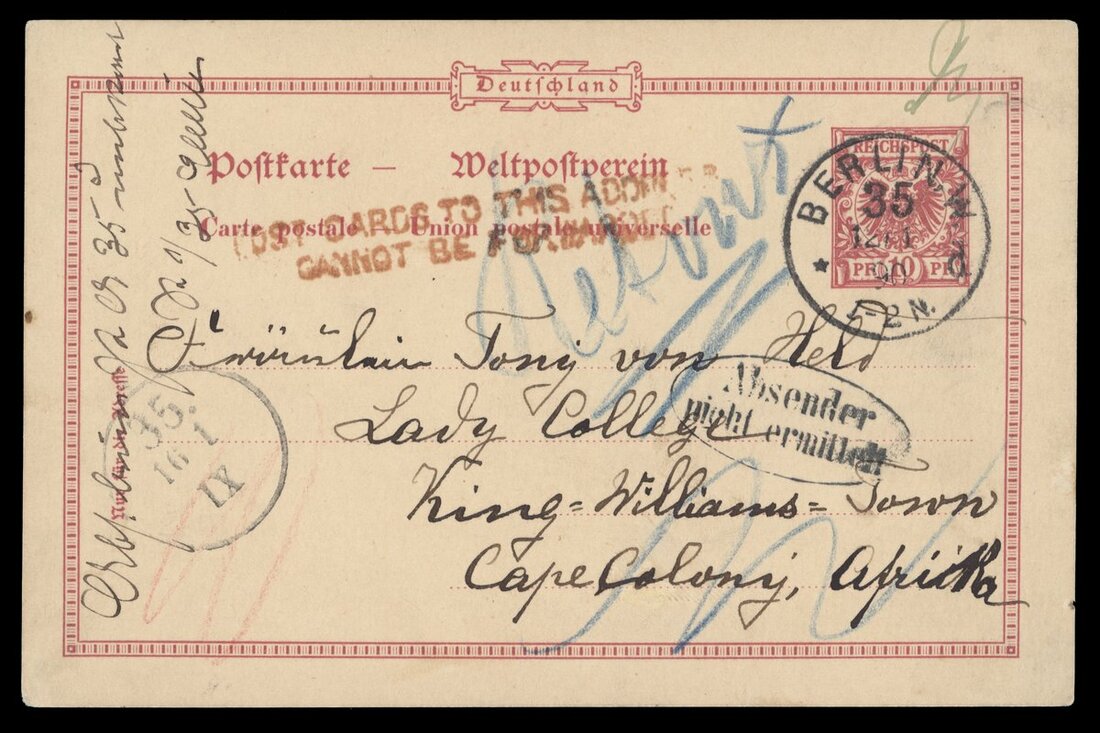 Deutschland
Postkarte — Weltpostverein
Carte postale — Union postale universelle
POST CARDS TO THIS ADDRESS
CANNOT BE FORWARDED
Retour
REICHSPOST
PF. 10 PF.
BERLIN. W.
35
12/1
90
1-2 N.
d
Fräulein Tony von Held
Lady College
King=Williams=Town
Cape Colony, Afrika
Absender
nicht ermittelt
35.
16
1
IX
35 unbekannt